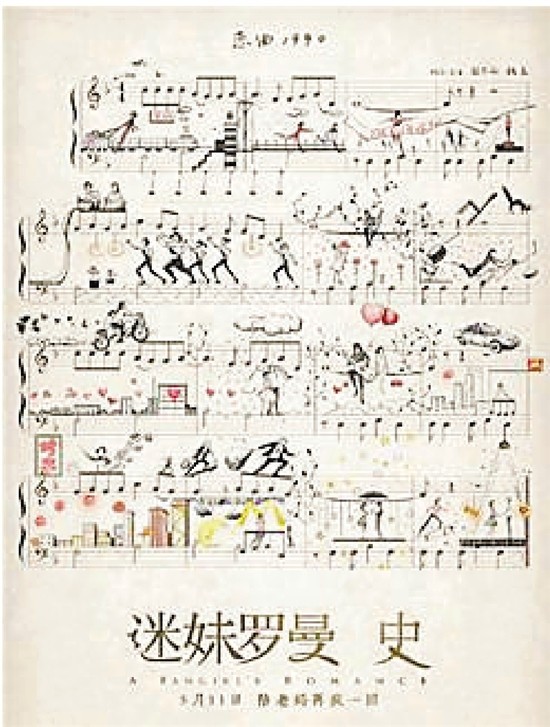 恋曲1990
迷妹罗曼 史
A FANGIRL'S ROMANCE
5月11日 陪老妈再疯一回